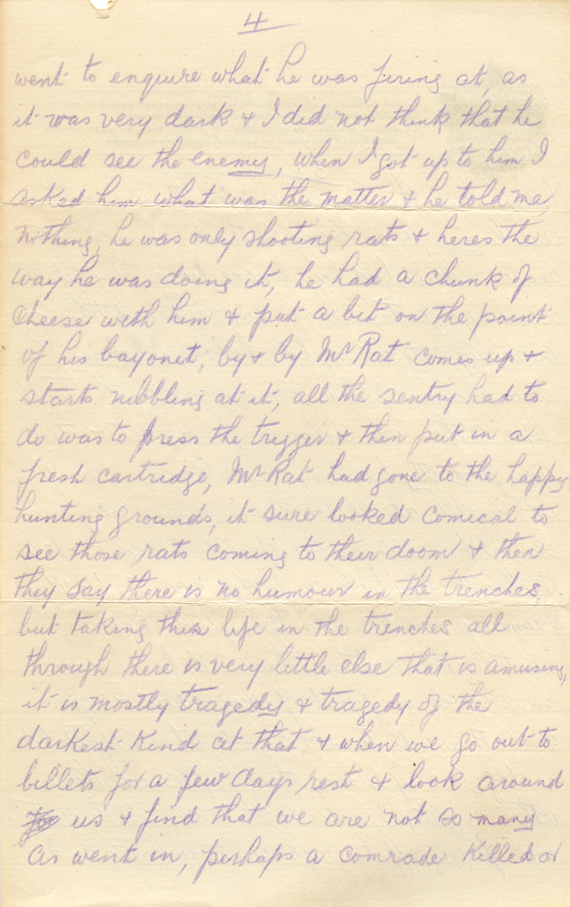 4
went to enquire what he was firing at, as
it was very dark & I did not think that he
could see the enemy, when I got up to him I
asked him what was the matter & he told me
nothing, he was only shooting rats & heres the
way he was doing it, he had a chunk of
cheese with him & put a bit on the point
of his bayonet, by & by Mr Rat comes up &
starts nibbling at it, all the sentry had to
do was to press the trigger & then put in a
fresh cartridge, Mr Rat had gone to the happy
hunting grounds, it sure looked comical to
see those rats coming to their doom & then
they say there is no humour in the trenches,
but taking this life in the trenches all
through there is very little else that is amusing,
it is mostly tragedy & tragedy of the
darkest kind at that & when we go out to
billets for a few days rest & look around
for us & find that we are not so many
as went in, perhaps a comrade killed or